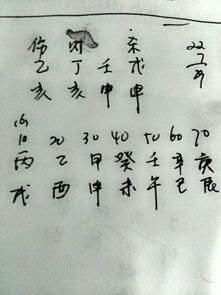 伤 财 杀 22
乙 丁 壬 戊
亥 亥 申 申
10 20 30 40 50 60 70
丙 乙 甲 癸 壬 辛 庚
戌 酉 申 未 午 巳 辰